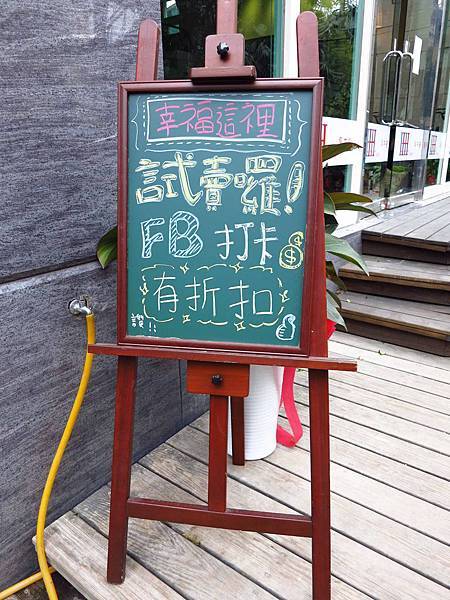 幸福這裡
試賣囉!
FB 打卡
$
有折扣
讚!!